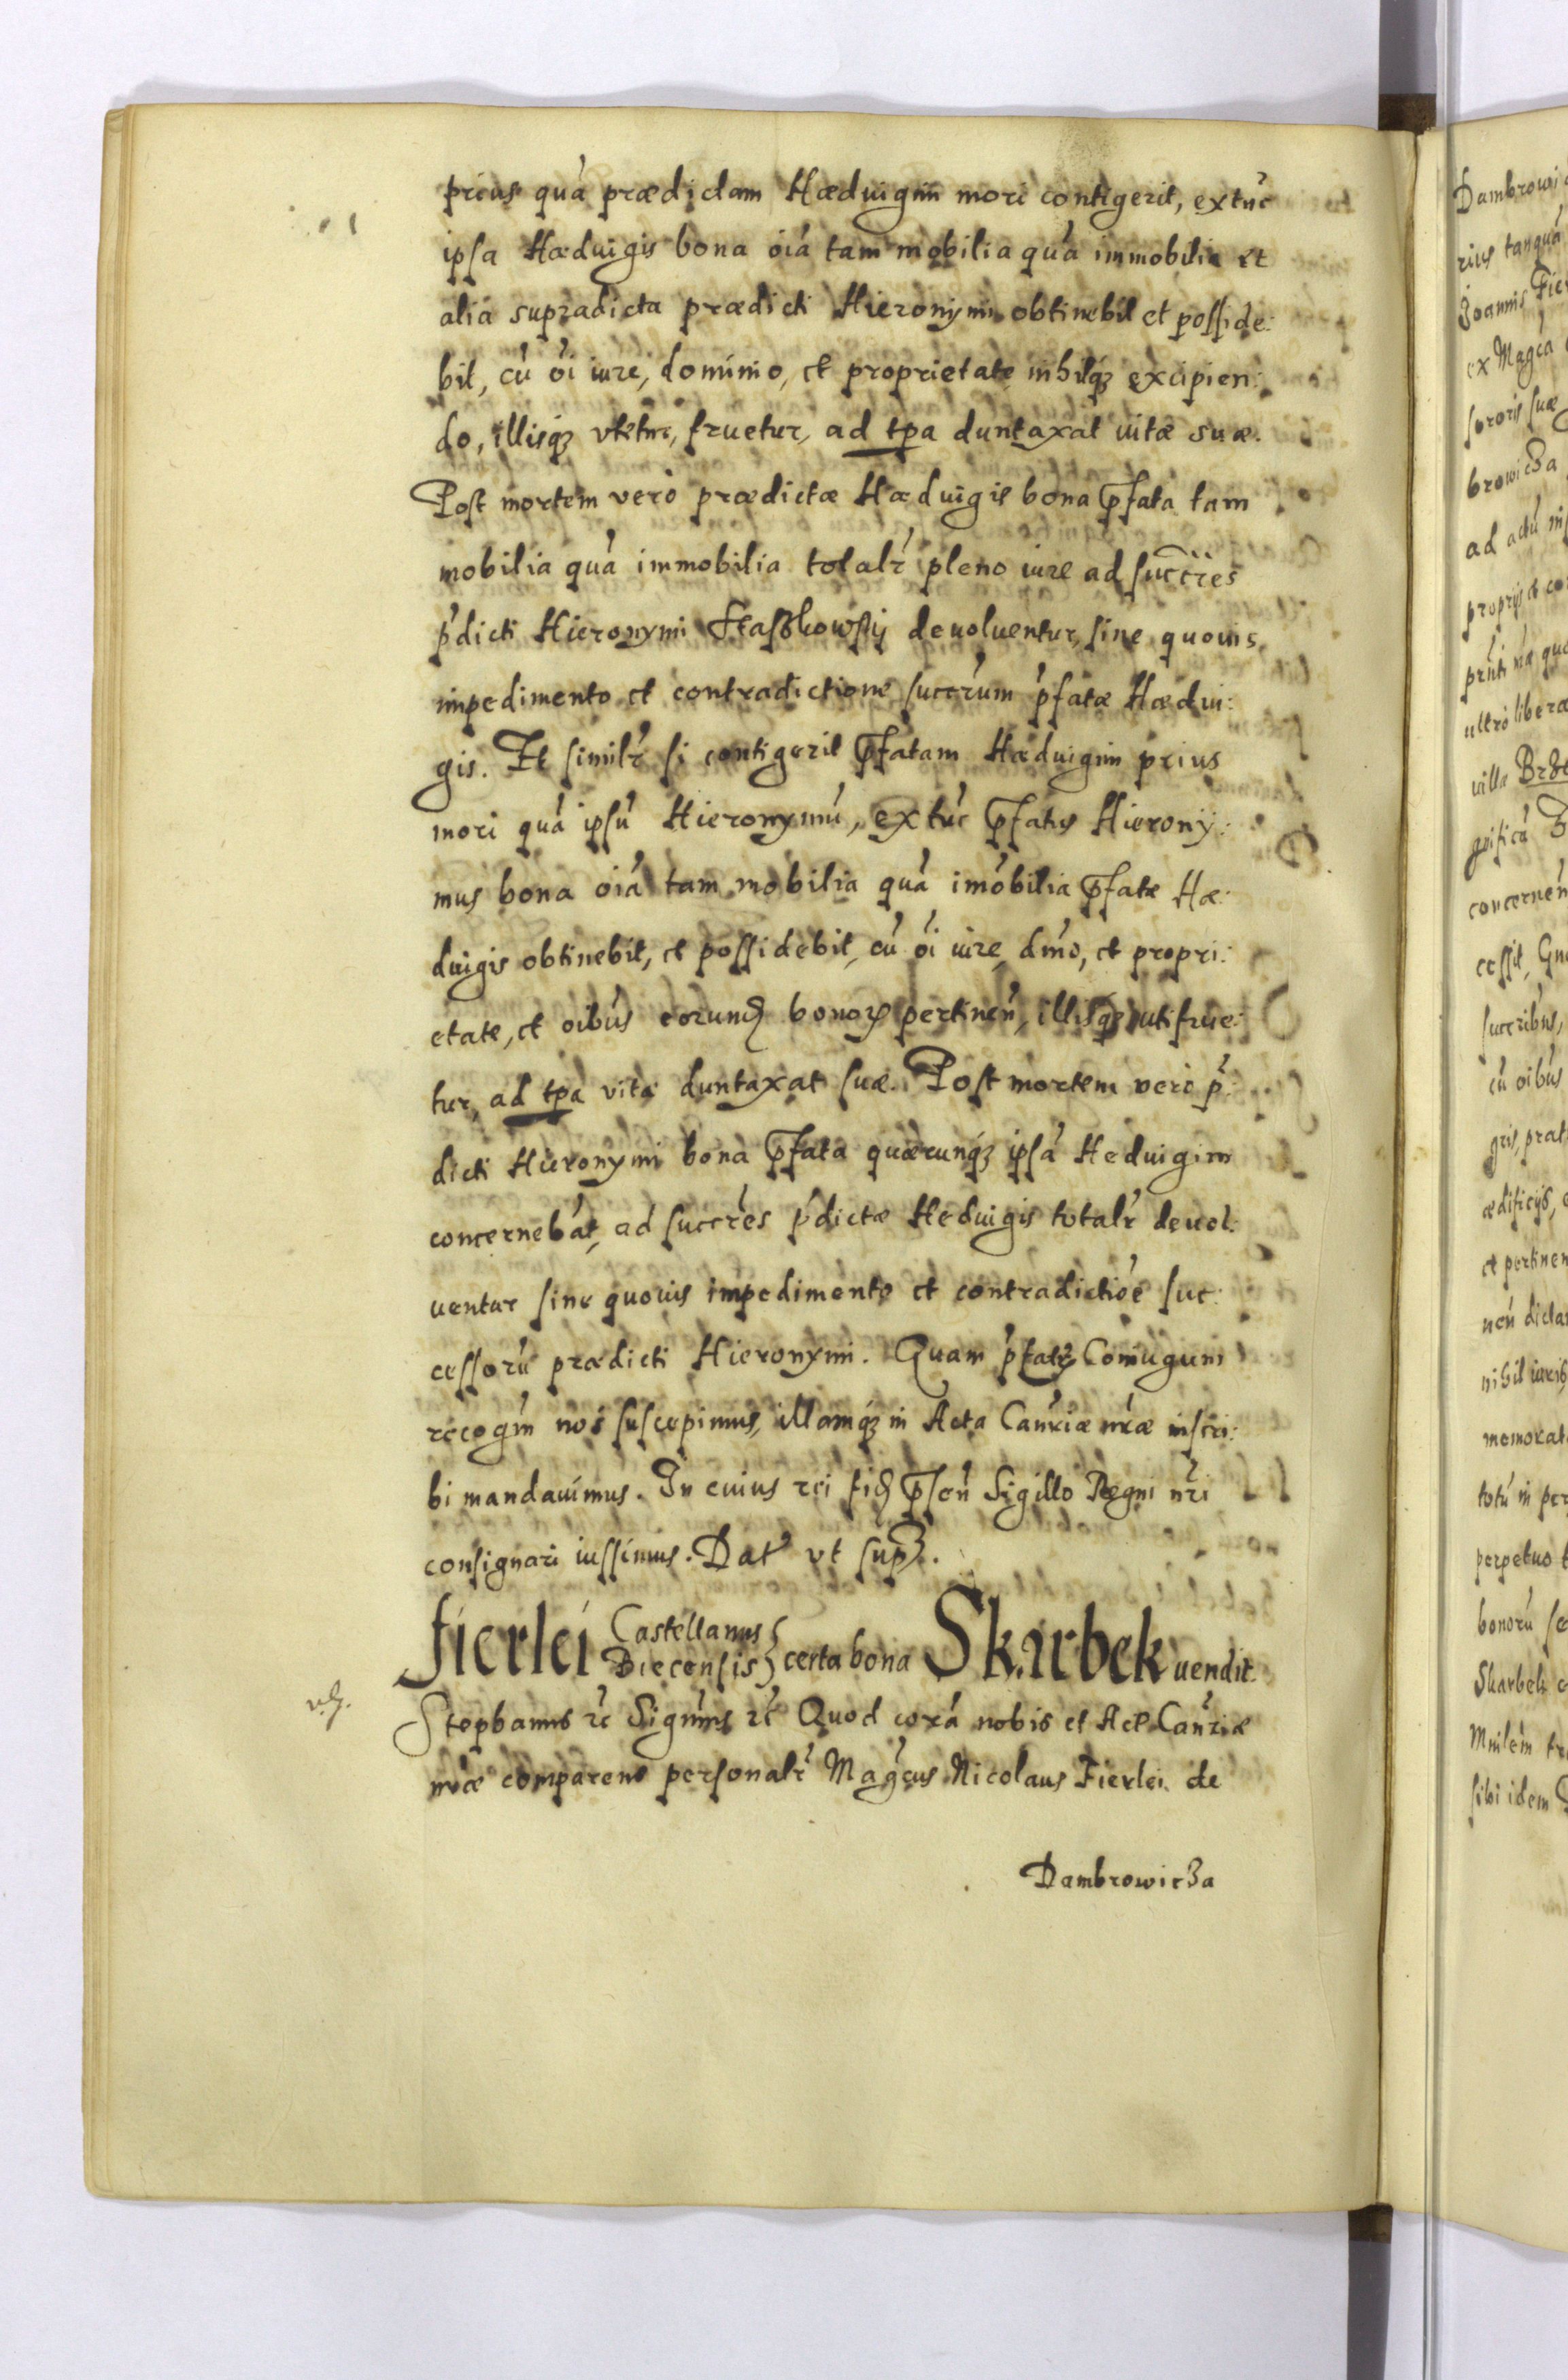 prius quā prædictam Hæduigim mori contigerit, extūc
ipsa Hæduigis bona oīa tam mobilia quā immobilia et
alia supradicta prædicti Hieronymi obtinebit et posside:
bit, cū oi iure, dominio, et proprietate nihilq3 excipien:
do, illisq3 vtetur, fruetur, ad tpa duntaxat uitæ suæ.
Post mortem verò prædictæ Hæduigis bona pfata tam
mobilia quā immobilia totalr pleno iure ad succres
pdicti Hieronymi Staszkowskÿ deuoluentur, sine quouis
impedimento et contradictione succrum pfatæ Hædui:
gis. Et similr si contigerit pfatam Hæduigim prius
mori quā ipsū Hieronymū, extūc pfatus Hierony:
mus bona oīa tam mobilia quā imōbilia pfatæ Hæ:
duigis obtinebit, et possidebit, cū oi iure, dmō, et propri:
etate, et oibus eorund bonor pertinen, illisq3 uti frue:
tur, ad tpa vitæ duntaxat suæ. Post mortem verò p:
dicti Hieronymi bona pfata quæcunq3 ipsā Heduigim
concernebāt, ad succres pdictæ Heduigis totalr deuol:
uentur sine quouis impedimento et contradictiōe suc:
cessorū prædicti Hieronymi. Quam pfator Coniugum
recogm nos suscepimus, illamq3 in Acta Canriæ nræ inscri:
bi mandauimus. In cuius rei fid psen Sigillo Regni nri
consignari iussimus. Dat vt sup.
Fierlei Castellanus Biecensis certa bona Skarbek uendit.
Stephanus rc Signms rc Quod corā nobis et Act Canriæ
nræ comparens personalr Magcus Nicolaus Fierlei de
Dambrowicza
Dambrowi
rius tanquā
Joannis Fier
ex Magca
sororis suæ
browicza
ad actū
proprÿs et co
ultrò libera
villa
concernen
cessit,
succribus,
cū oibus
gris, prat
ædificÿs,
et pertinen
nen dicta
nihil iuris
memorat
totū in per
perpetuo
bonorū
Skarbek
sibi idem